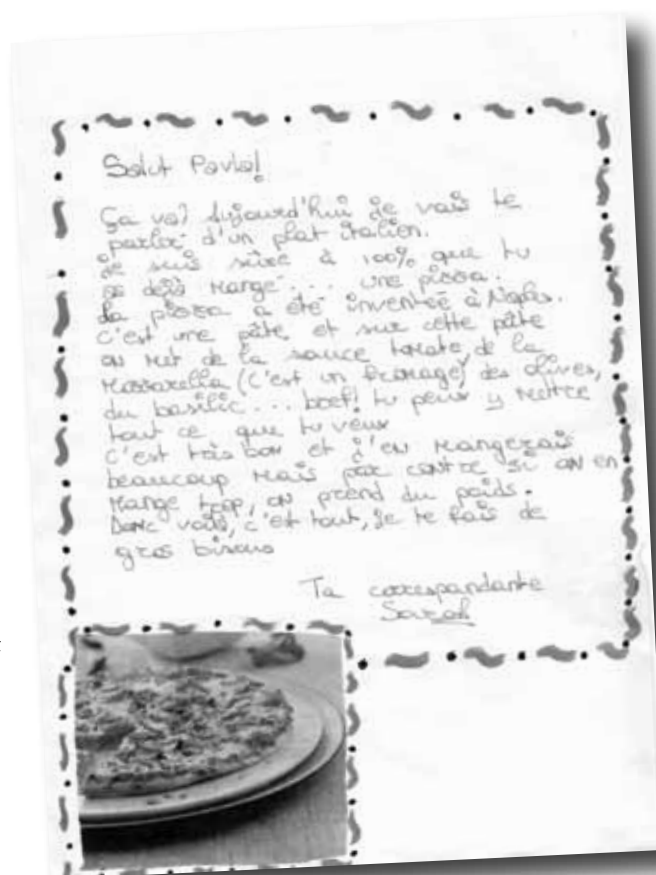 Salut Pavla!
Ça va? Aujourd'hui je vais te
parler d'un plat italien.
Je suis sûre à 100% que tu
as déjà mangé... une pizza.
La pizza a été inventée à Naples.
C'est une pâte et sur cette pâte
on met de la sauce tomate, de la
mozzarella (c'est un fromage), des olives,
du basilic... bref! tu peux y mettre
tout ce que tu veux
C'est très bon et j'en mangerais
beaucoup mais par contre si on en
mange trop, on prend du poids.
Donc voilà, c'est tout, je te fais de
gros bisous
Ta correspondante
Sarah